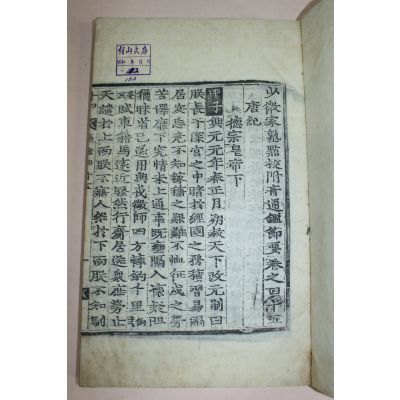 少微家塾點校附音通鑑節要卷之四十五
唐紀
德宗皇帝下
甲子興元元年春正月朔赦天下改元制曰
朕長于深宮之中暗於經國之務積習易溺
居安忘危不知稼穡之艱難不恤征戍之勞
苦澤靡下究情未上通事旣壅隔人懷疑阻
猶昧省己遂用興戎徵師四方轉餉千里
賦車籍馬遠近騷然行齎居送衆庶勞止
天譴於上而朕不悟人怨於下而朕不知馴